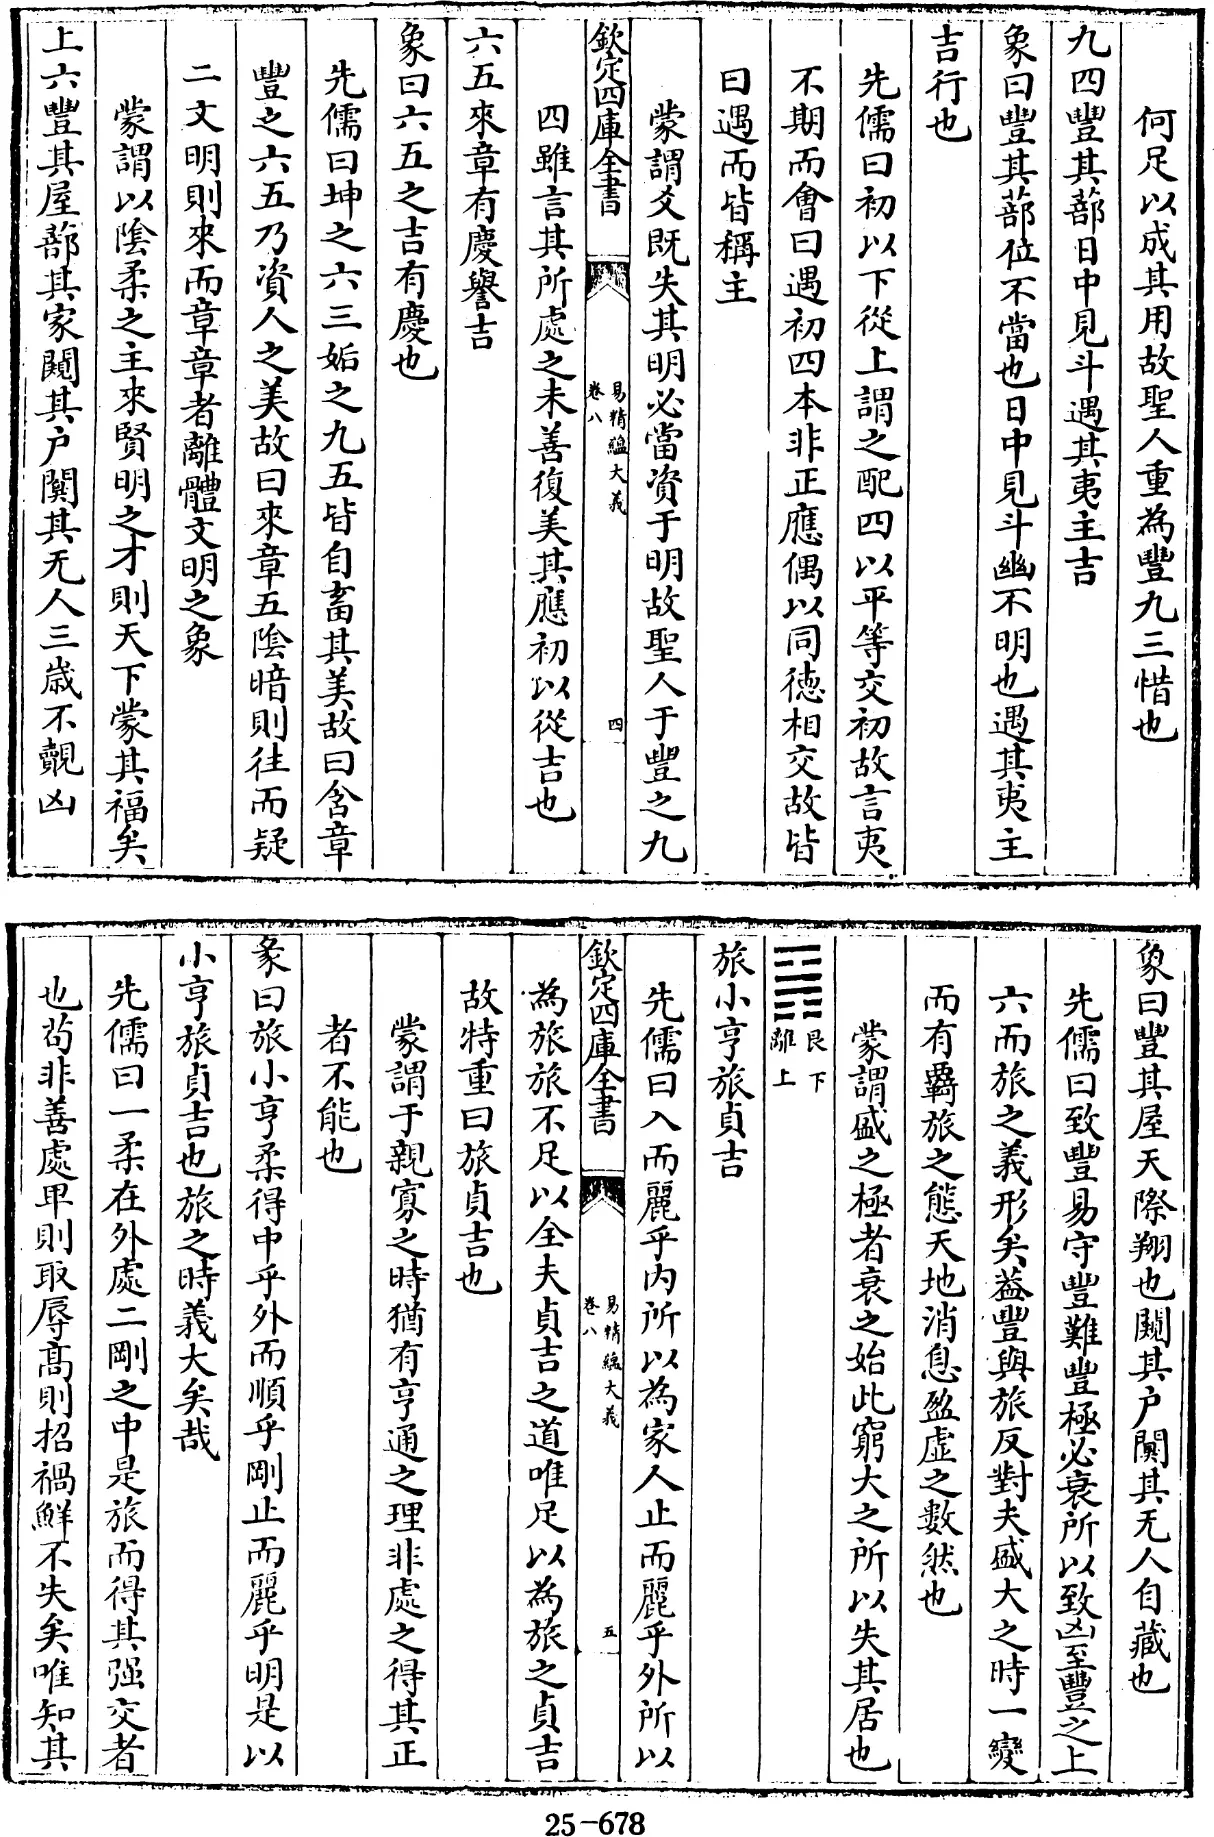 何足以成其用故聖人重為豐九三惜也
九四豐其蔀日中見斗遇其夷主吉
象曰豐其蔀位不當也日中見斗幽不明也遇其夷主
吉行也
先儒曰初以下從上謂之配四以平等交初故言夷
不期而會曰遇初四本非正應偶以同徳相交故皆
曰遇而皆稱主
蒙謂爻既失其明必當資于明故聖人于豐之九
欽定四庫全書
易精蘊大義
卷八
四
四雖言其所處之未善復美其應初以從吉也
六五來章有慶譽吉
象曰六五之吉有慶也
先儒曰坤之六三姤之九五皆自畜其美故曰含章
豐之六五乃資人之美故曰來章五陰暗則往而疑
二文明則來而章章者離體文明之象
蒙謂以陰柔之主來賢明之才則天下蒙其福矣
上六豐其屋蔀其家闚其户闃其无人三歳不覿凶
象曰豐其屋天際翔也闚其户闃其无人自藏也
先儒曰致豐易守豐難豐極必衰所以致凶至豐之上
六而旅之義形矣蓋豐與旅反對夫盛大之時一變
而有羇旅之態天地消息盈虚之數然也
蒙謂盛之極者衰之始此窮大之所以失其居也
䷷艮下
離上
旅小亨旅貞吉
先儒曰入而麗乎内所以為家人止而麗乎外所以
欽定四庫全書
易精蘊大義
卷八
五
為旅旅不足以全夫貞吉之道唯足以為旅之貞吉
故特重曰旅貞吉也
蒙謂于親寡之時猶有亨通之理非處之得其正
者不能也
彖曰旅小亨柔得中乎外而順乎剛止而麗乎明是以
小亨旅貞吉也旅之時義大矣哉
先儒曰一柔在外處二剛之中是旅而得其强交者
也苟非善處卑則取辱髙則招禍鮮不失矣唯知其
25-678